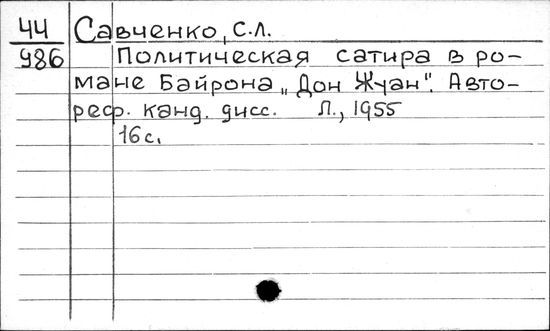 44 Савченко, С.Л.
986 Политическая сатира в ро-
мане Байрона „Дон Жуан". Авто-
реф. канд. дисс. Л., 1955
16 с.